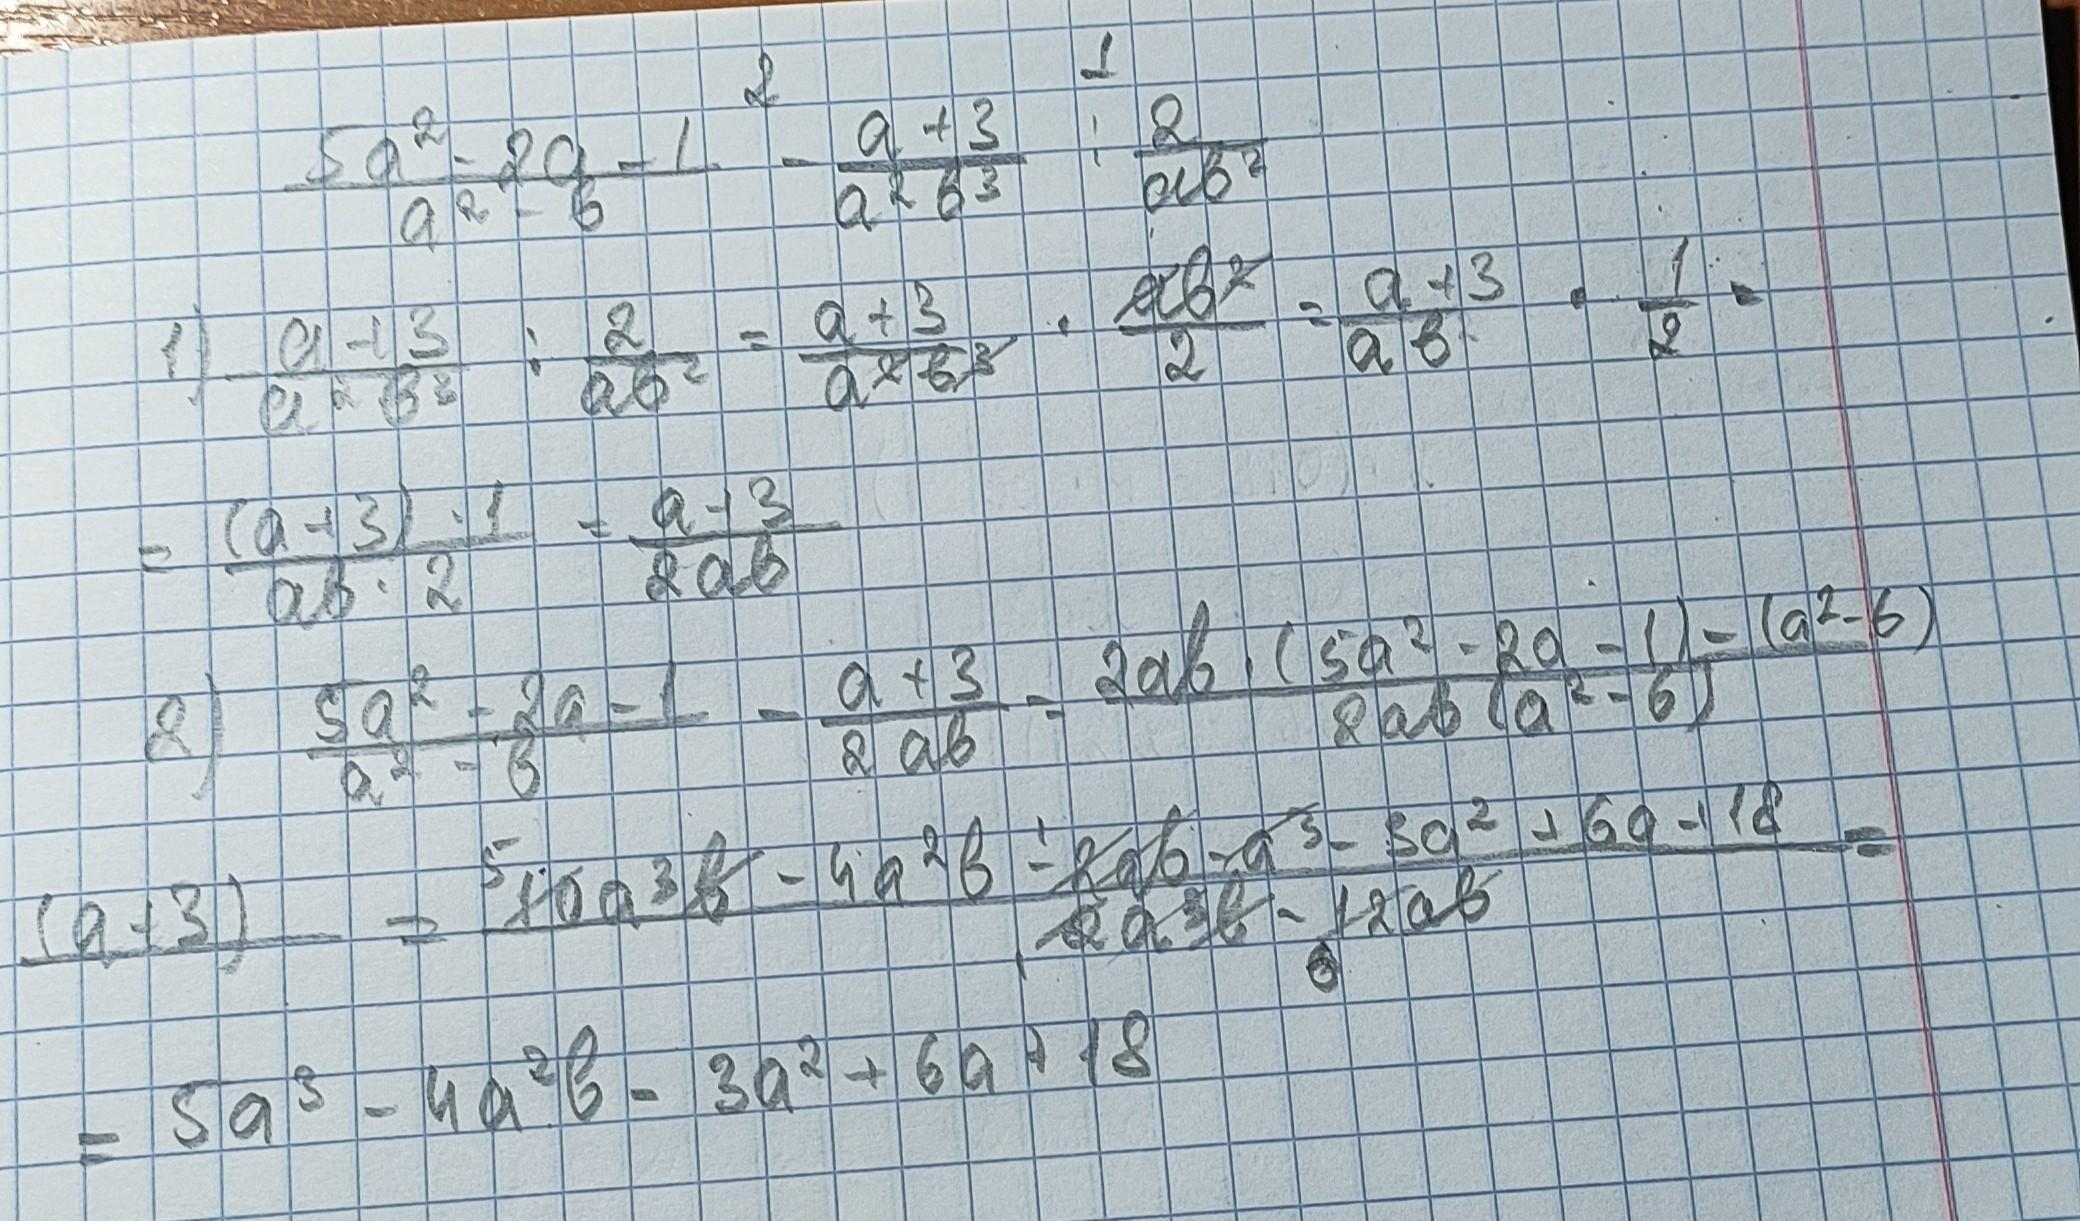 2 1
(5a² - 2a - 1)/(a² - b) - (a + 3)/(a²b³) : 2/(ab²)
1) (a + 3)/(a²b³) : 2/(ab²) = (a + 3)/(a²b³) · (ab²)/2 = (a + 3)/(ab) · 1/2 =
= ((a + 3) · 1)/(ab · 2) = (a + 3)/(2ab)
2) (5a² - 2a - 1)/(a² - b) - (a + 3)/(2ab) = (2ab · (5a² - 2a - 1) - (a² - 6)/(2ab(a² - 6)
(a + 3) = (10a³b - 4a²b - 2ab - a³ - 3a² + 6a + 18)/(2a³b - 12ab) =
= 5a³ - 4a²b - 3a² + 6a + 18